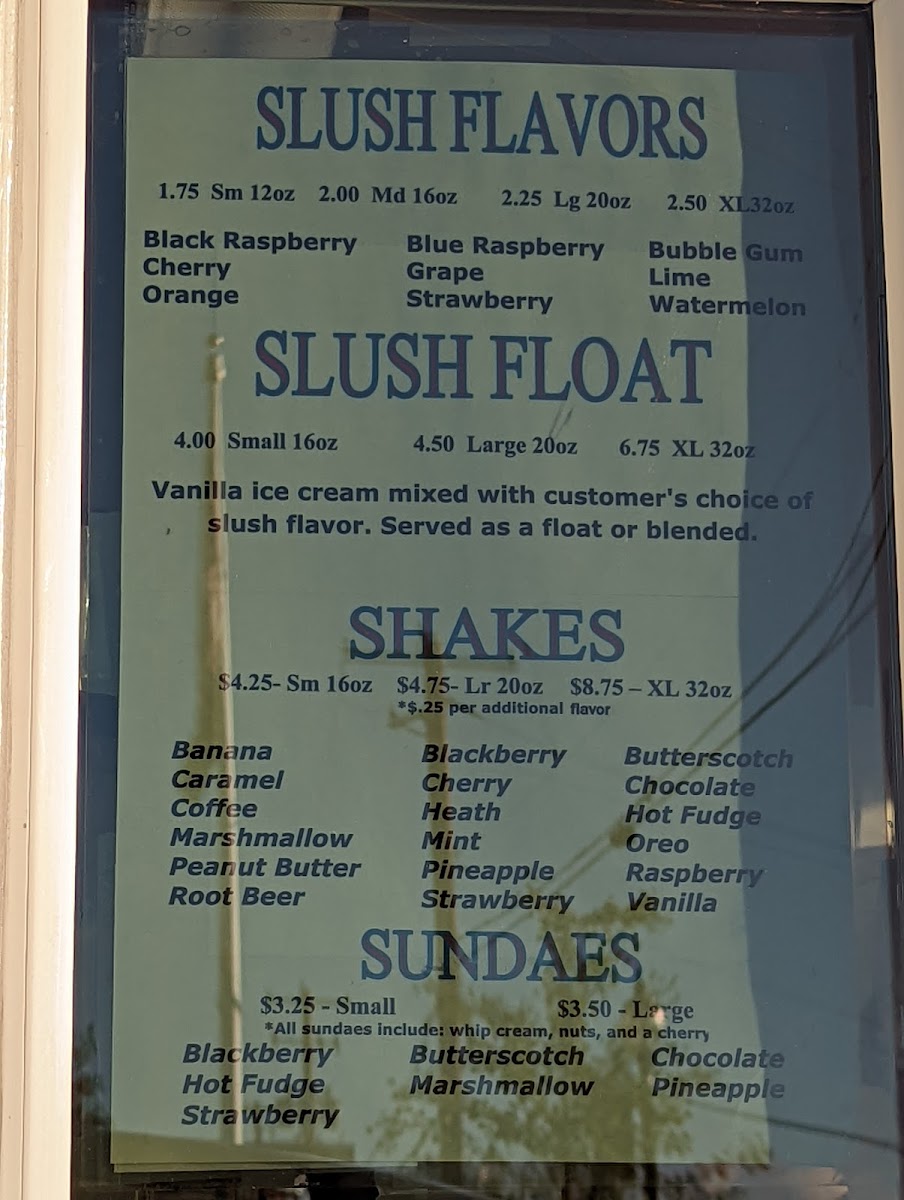 SLUSH FLAVORS
1.75 Sm 12oz 2.00 Md 16oz 2.25 Lg 20oz 2.50 XL32oz
Black Raspberry Blue Raspberry Bubble Gum
Cherry Grape Lime
Orange Strawberry Watermelon
SLUSH FLOAT
4.00 Small 16oz 4.50 Large 20oz 6.75 XL 32oz
Vanilla ice cream mixed with customer's choice of
slush flavor. Served as a float or blended.
SHAKES
$4.25- Sm 16oz $4.75- Lr 20oz $8.75 – XL 32oz
*$.25 per additional flavor
Banana Blackberry Butterscotch
Caramel Cherry Chocolate
Coffee Heath Hot Fudge
Marshmallow Mint Oreo
Peanut Butter Pineapple Raspberry
Root Beer Strawberry Vanilla
SUNDAES
$3.25 - Small $3.50 - Large
*All sundaes include: whip cream, nuts, and a cherry
Blackberry Butterscotch Chocolate
Hot Fudge Marshmallow Pineapple
Strawberry